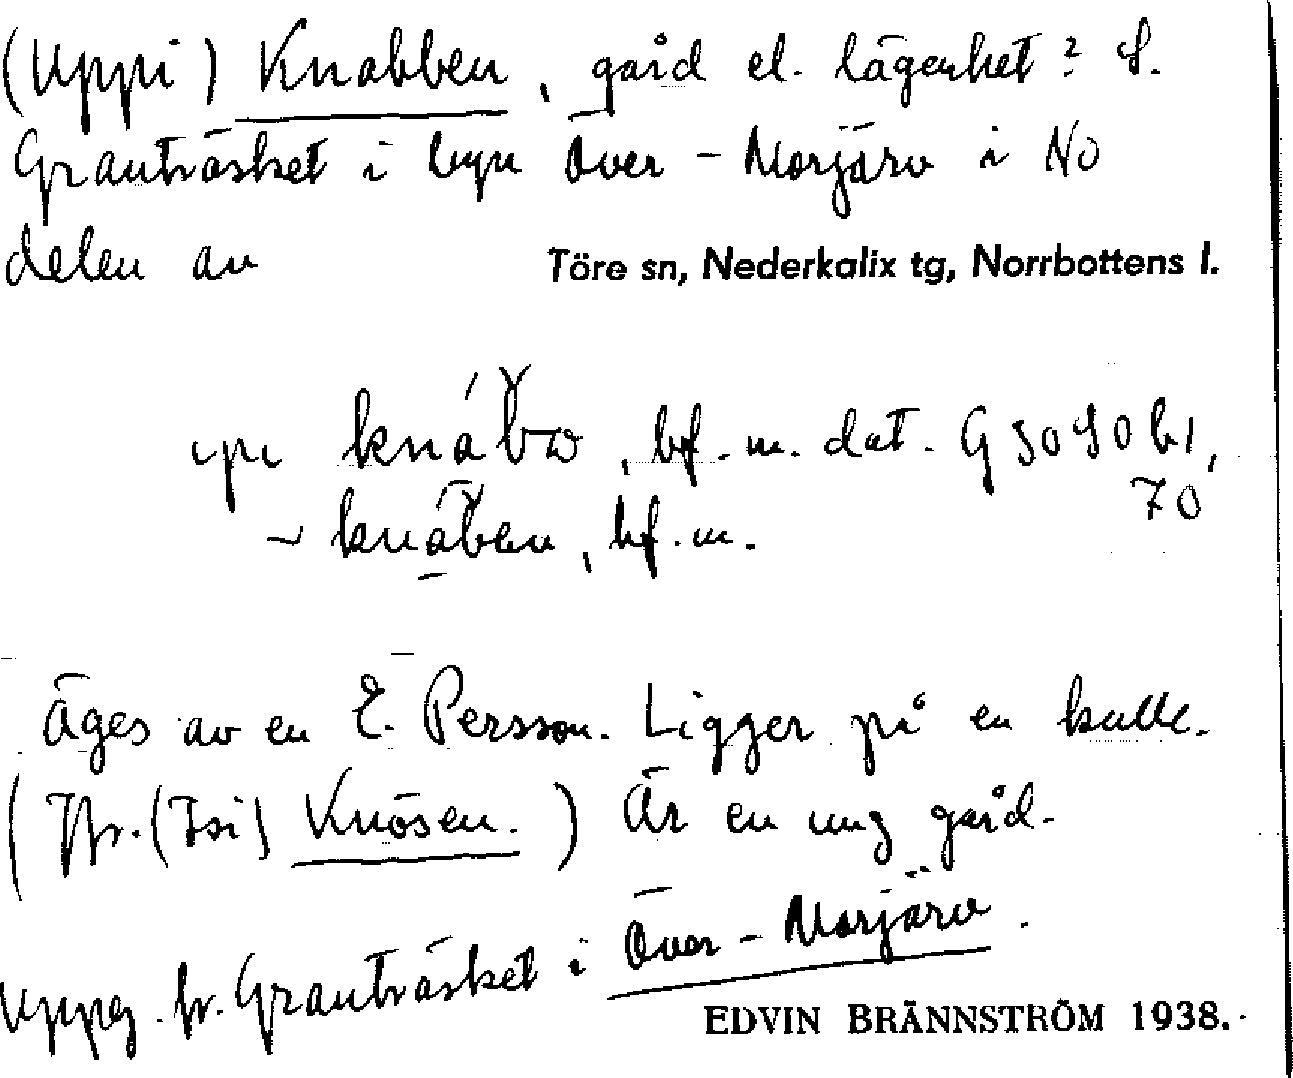 (Uppi) Knabben, gård el. lägenhet? S.
Granträsket i byn Över-Morjärv i NO
delen av Töre sn, Nederkalix tg, Norrbottens l.
bf. m. dat. G 3090 b1,
70
~ knaben, bf. m.
Äges av en E. Persson. Ligger på en kulle.
(Jfr. (Isi) Knösen.) Är en ung gård.
Uppg. fr. Granträsket i Över-Morjärv.
EDVIN BRÄNNSTRÖM 1938.